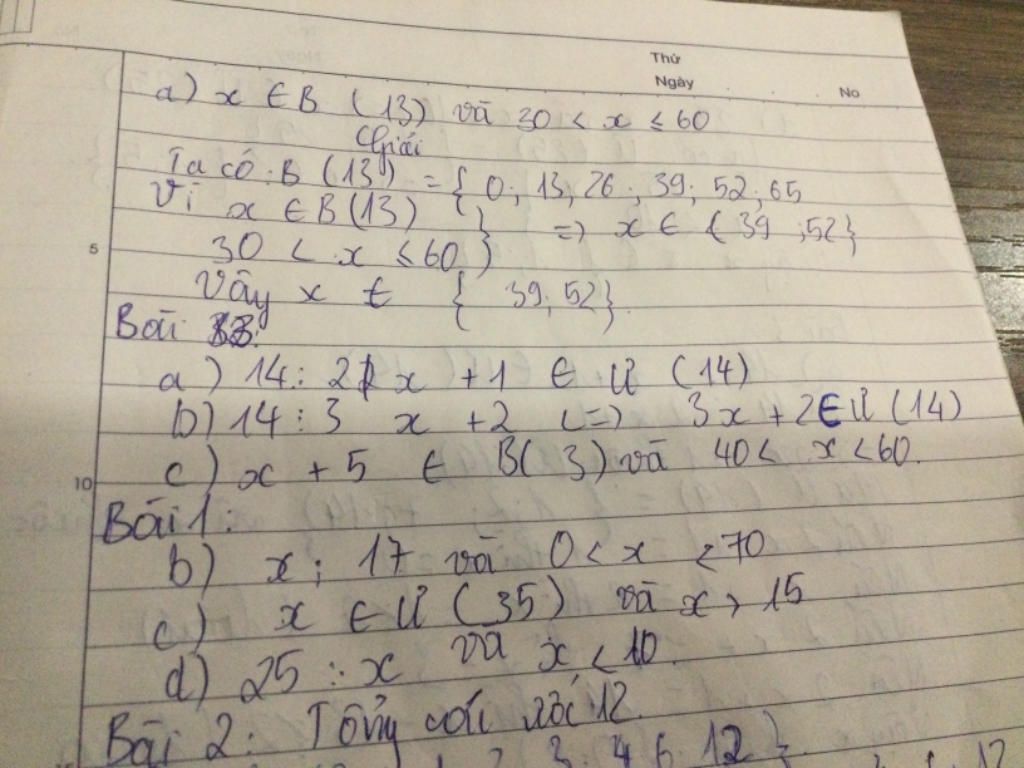 Thứ
Ngày . . . No
a) x ∈ B (13) và 30 < x ≤ 60
Giải
Ta có : B (13) = { 0 ; 13 ; 26 ; 39 ; 52 ; 65
Vì x ∈ B(13) } => x ∈ { 39 ; 52 }
30 < x ≤ 60 }
Vậy x ∈ { 39 ; 52 }
5
Bài
a) 14 : 2 x + 1 ∈ Ư (14)
b) 14 : 3 x + 2 <=> 3x + 2 ∈ Ư (14)
c) x + 5 ∈ B( 3) và 40 < x < 60.
10
Bài 1 :
b) x ⋮ 17 và 0 < x < 70
c) x ∈ Ư (35) và x > 15
d) 25 ⋮ x và x < 10.
Bài 2 : Tổng các 12.
2 3 . 4 6 . 12 }